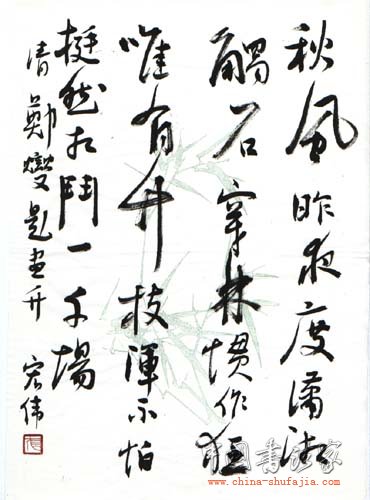 秋風昨夜度瀟湘
觸石穿林慣作狂
唯有竹枝渾不怕
挺然相鬥一千場
清鄭燮題畫竹 宏伟
中国书法家
www.china-shufajia.com